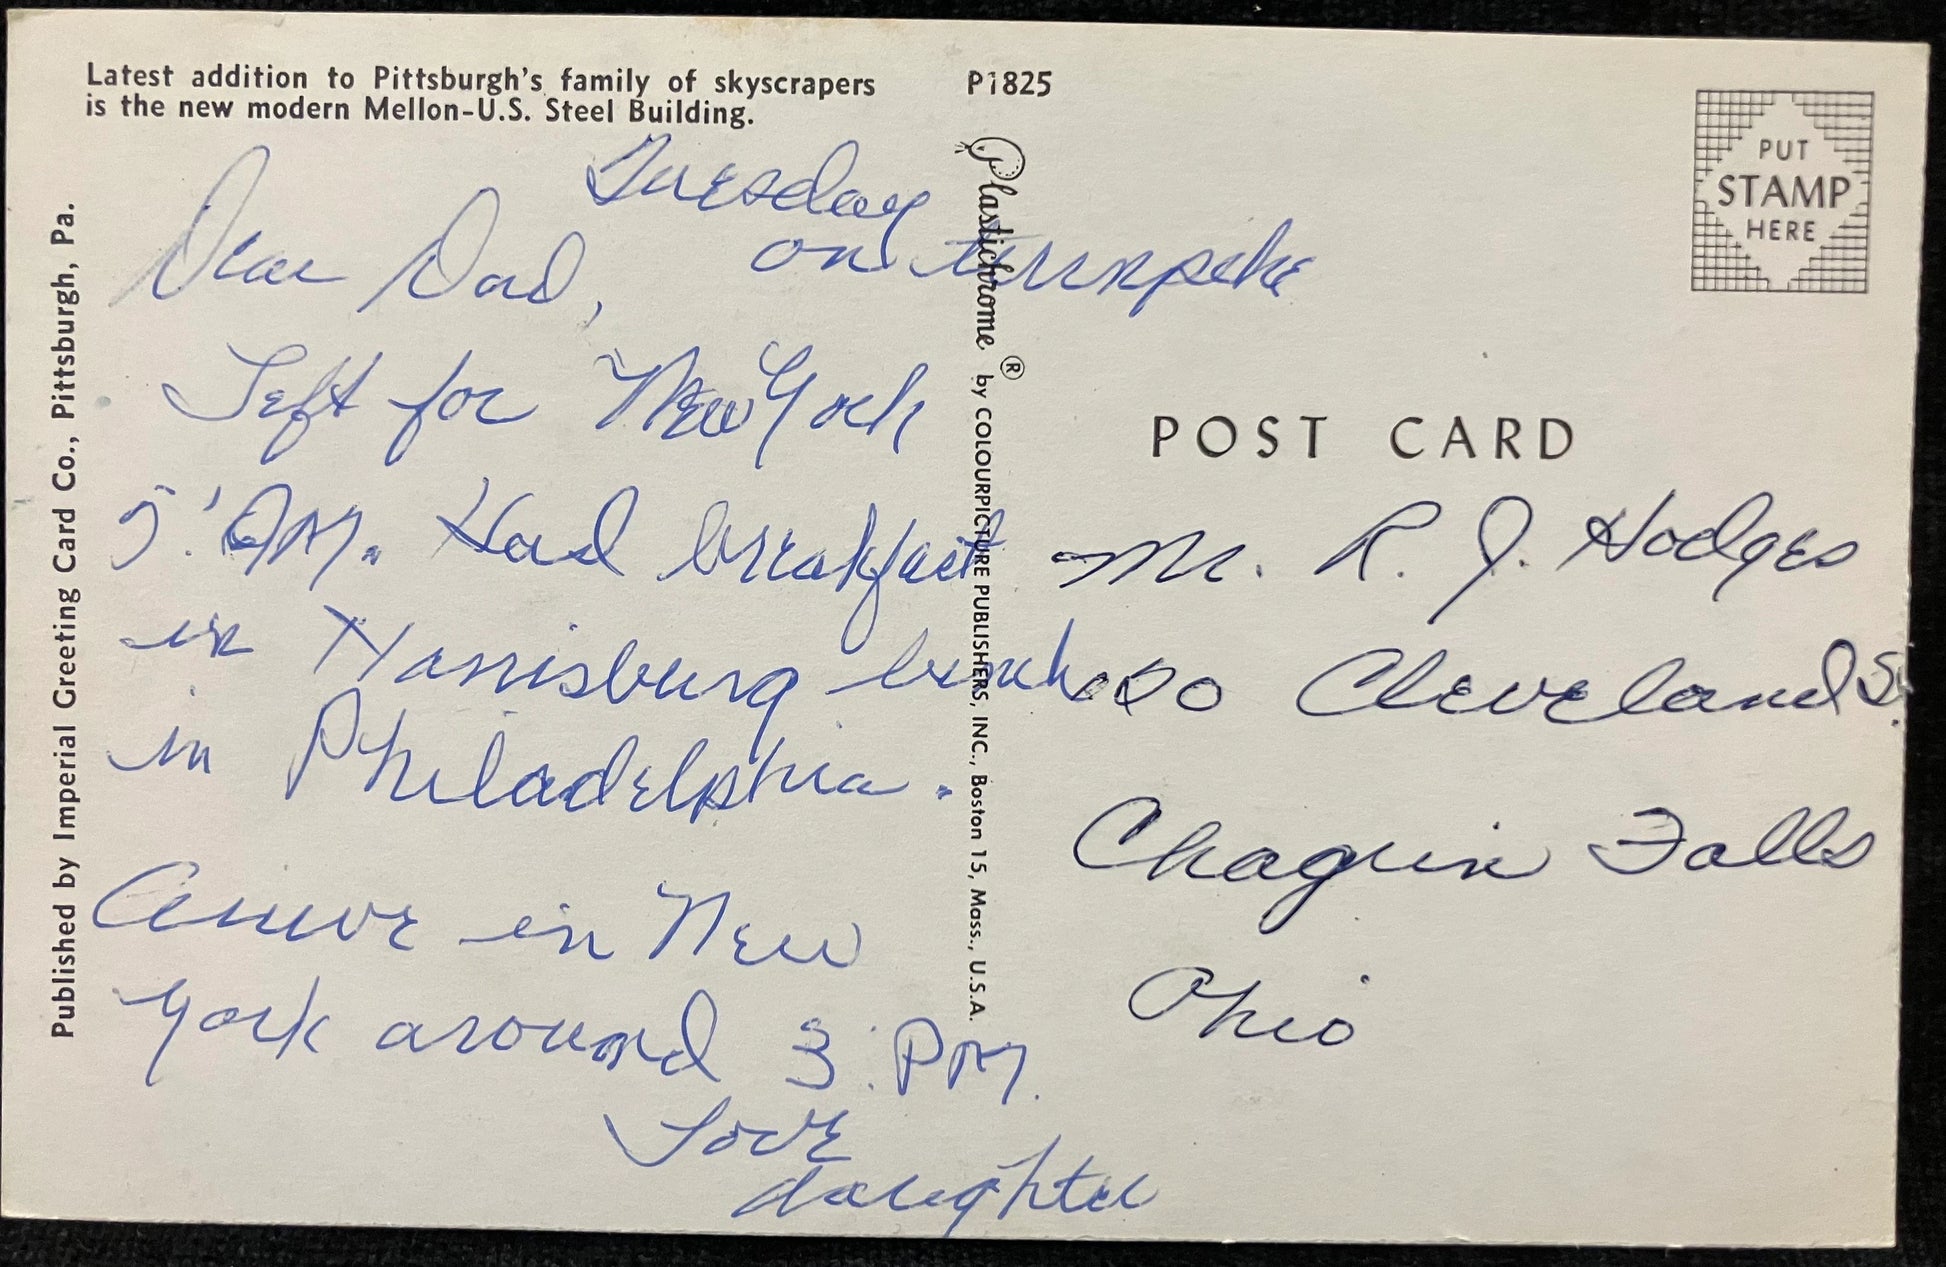 Latest addition to Pittsburgh's family of skyscrapers
is the new modern Mellon-U.S. Steel Building.
P1825
PUT
STAMP
HERE
Published by Imperial Greeting Card Co., Pittsburgh, Pa.
Plastichrome ® by COLOURPICTURE PUBLISHERS, INC., Boston 15, Mass., U.S.A.
POST CARD
Tuesday
on turnpike
Dear Dad,
Left for New York
AM. Had breakfast
in Harrisburg lunch
in Philadelphia.
Arrive in New
York around 3: PM.
Love
daughter
Mr. R. J. Hodges
Cleveland S.
Chagrin Falls
Ohio